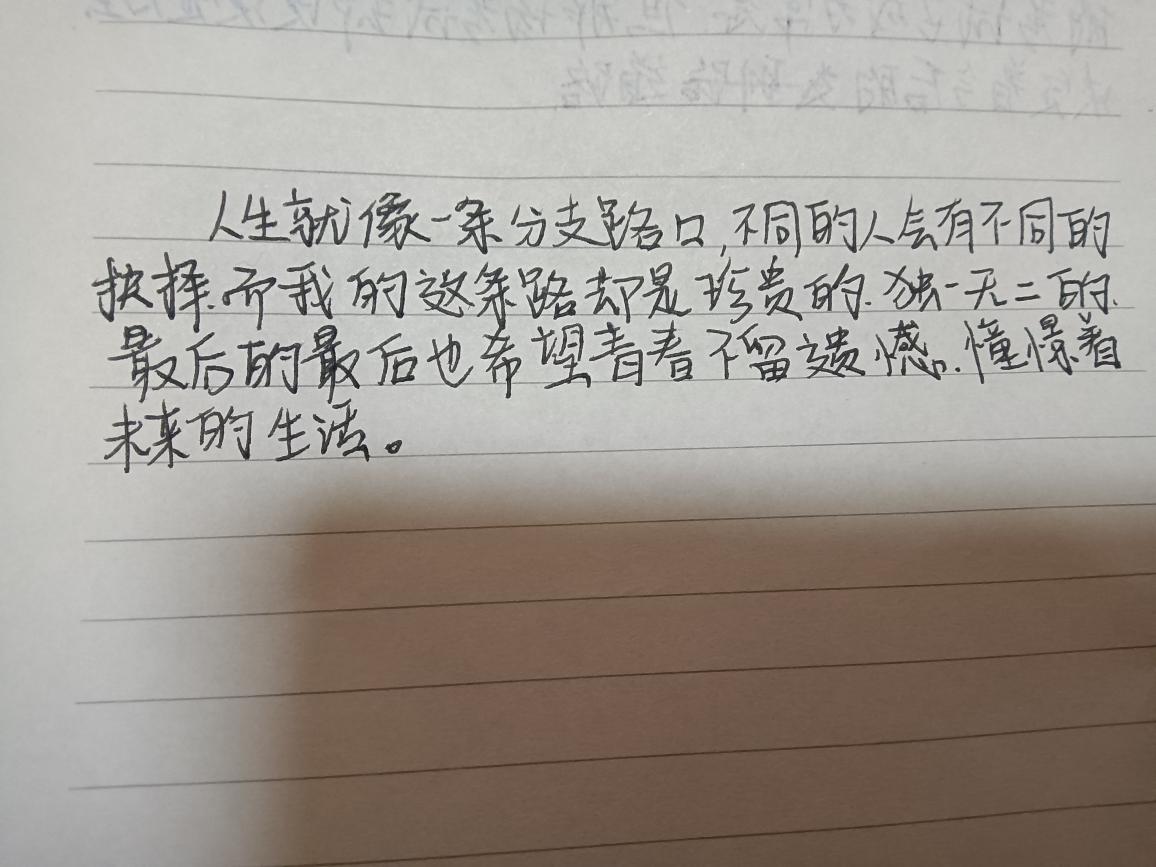 人生就像一条分支路口,不同的人会有不同的
抉择.而我的这条路却是珍贵的.独一无二的.
最后的最后也希望青春不留遗憾。.憧憬着
未来的生活。